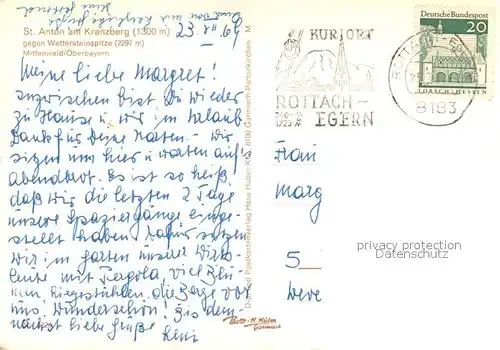 St. Anton am Kranzberg (1300 m)
gegen Wettersteinspitze (2297 m)
Mittenwald/Oberbayern
23. VII 69
Meine liebe Margret!
Inzwischen bist Du wieder
zu Hause u. wir im Urlaub
Dank für Deine Karten. Wir
sitzen nun hier u. warten auf's
Abendbrot. Es ist so heiß,
daß wir die letzten 2 Tage
unsere Spaziergänge einge-
stellt haben. Dafür sitzen
wir im Garten unserer Wirts-
leute mit Pergola, viel Blu-
men, Liegestühlen, die Berge vor
uns. Wunderschön! Bis dem-
nächst liebe Grüße
Leni
Druck und Postkartenverlag Hans Huber KG, 8100 Garmisch-Partenkirchen
KURORT
ROTTACH-
EGERN
Deutsche Bundespost
20
LORSCH/HESSEN
ROTTACH-EG
8183
Frau
Marg
5
Leve
privacy protection
Datenschutz
Photo-H. Huber
Garmisch